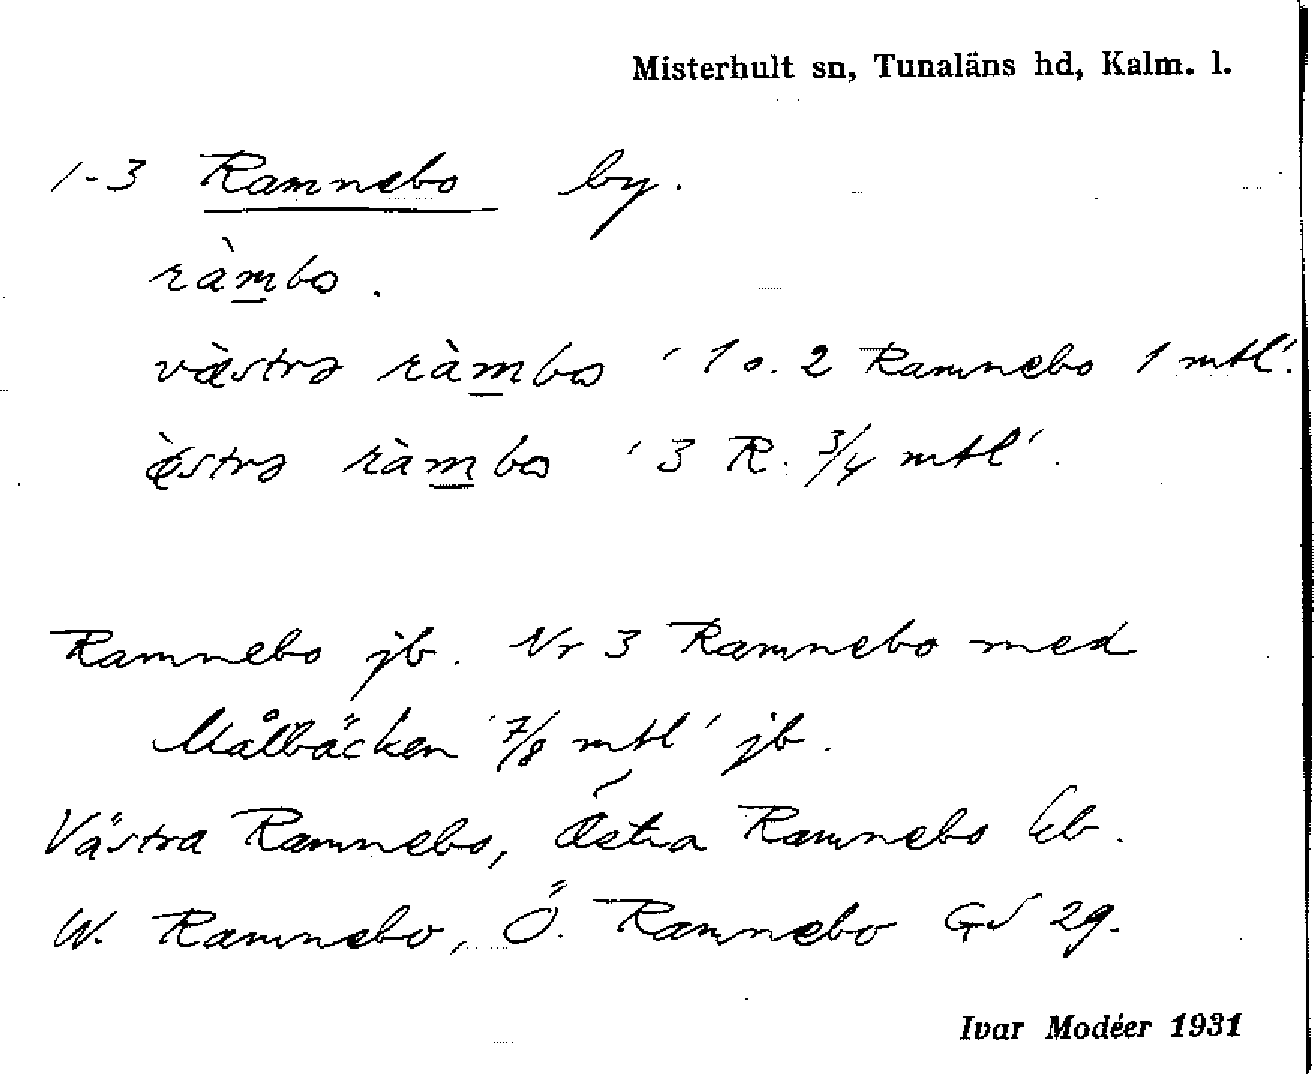 Misterhult sn, Tunaläns hd, Kalm. l.
1-3 Ramnebo by.
ràmbo.
væ̀strə ràmbo '1 o. 2 Ramnebo 1 mtl'.
œ̀strə ràmbo '3 R. 3/4 mtl'.
Ramnebo jb. Nr 3 Ramnebo med
Målbäcken '7/8 mtl' jb.
Västra Ramnebo, Östra Ramnebo
W. Ramnebo, Ö. Ramnebo GS 29.
Ivar Modéer 1931